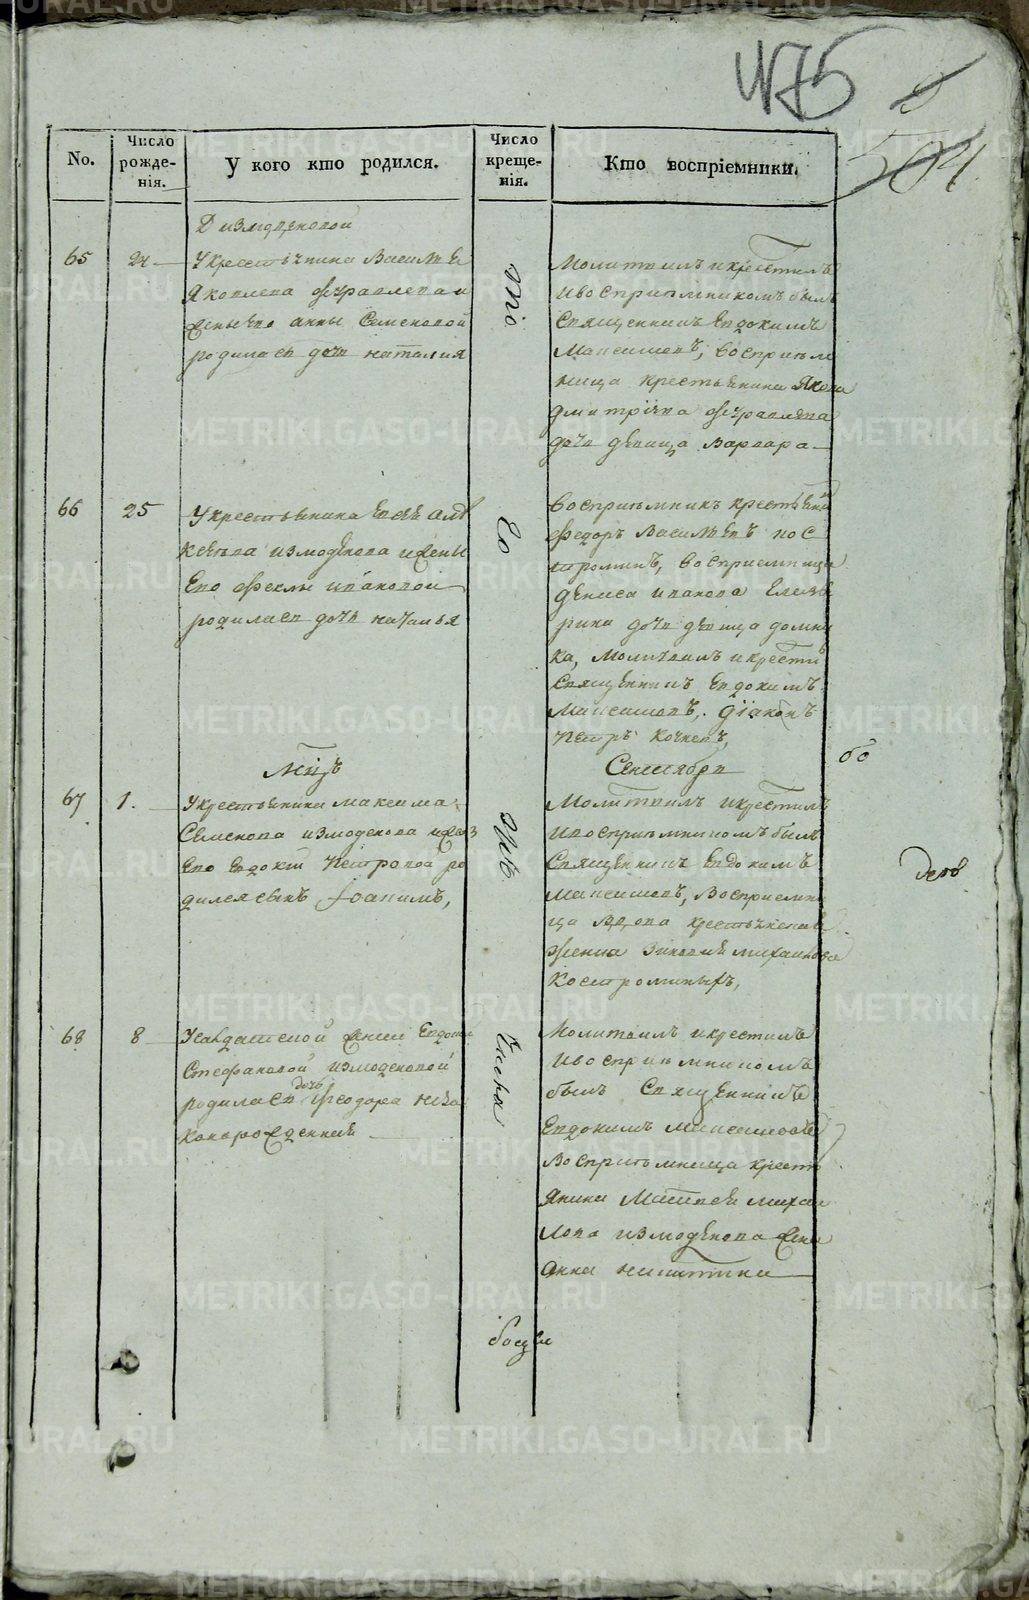 475
504
No.
Число рожде-нія.
У кого кто родился.
Число креще-нія.
Кто воспріемники.
Измоденовой
65
24
У крестьянина Василья
Яковлева Журавлева и
жены его анны Семеновой
родилась дочь наталия
того
Молитвилъ и крестилъ
и воспріемникомъ былъ
Священникъ Евдокимъ
Максимовъ, воспріем
ница крестьянина Якова
дмитріева Журавлева
дочь девица Варвара
66
25
У крестьянина
измоденова и жены
Его Феклы ивановой
родилась дочь наталья
Его
Воспріемникъ крестьянинъ
Федоръ Васильевъ кос
троминъ, воспріемница
дениса иванова
дочь девица домни
ка, молитвилъ и крестил
Священникъ Евдокимъ
Максимовъ, діаконъ
Петръ
бо
Мцъ
Сентября
67
1.
У крестьянина максима
Семенова измоденова и жен
Его Евдокіи Петровой ро
дился сынъ Іоакимъ,
Молитвилъ и крестилъ
и воспріемникомъ былъ
Священникъ Евдокимъ
максимовъ, воспріемни
ца вдова крестьянская
женка михайлова
Костроминыхъ,
68
8
У салдатской жены Евдокіи
Стефановой измоденовой
дочь
родилась Феодора неза
коннорожденная
числа
Молитвилъ и крестилъ
и воспріемникомъ
былъ Священникъ
Евдокимъ максимовъ
воспріемница крест
янина Матвея михаи
лова измоденова жена
Анна никитина